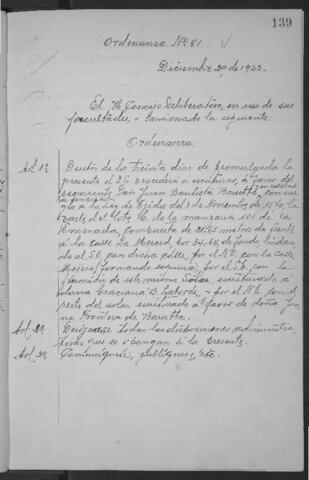 139
Ordenanza Nº 81
Diciembre 29 de 1922.
El H. Concejo Deliberativo, en uso de sus
facultades, a sancionado la siguiente:
Ordenanza:
Art. 1º Dentro de los treinta dias de promulgada la
presente el D.E. procederá a escriturar, a favor del
recurrente, Don Juan Bautista Baretta,
glo a la Ley de Ejidos del 3 de Noviembre de 1870 la
parte del lote C. de la manzana 101 de la
Rinconada, compuesta de metros de frente
á la calle La Merced, por 34.64 de fondo, lindan-
do al S.O. con dicha calle, por el N.O. con la calle
formando esquina, por el S.E. con la
fracción de este mismo Solar, escriturado á
doña Graciana D. Laborde, y por el N.E. con el
resto del solar escriturado á favor de doña Jua
na de Baretta.
Art. 2º Deroganse todas las disposiciones administra-
tivas que se opongan a la presente.
Art. 3º Comuniquese, publiquese, etc.